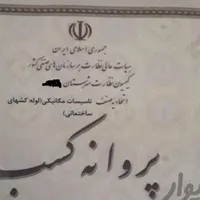 جمهوری اسلامی ایران
هیات عالی نظارت بر سازمان های صنفی کشور
کمیسیون نظارت شهرستان
اتحادیه صنف تاسیسات مکانیکی(لوله کشهای
ساختمانی)
پروانه کسب